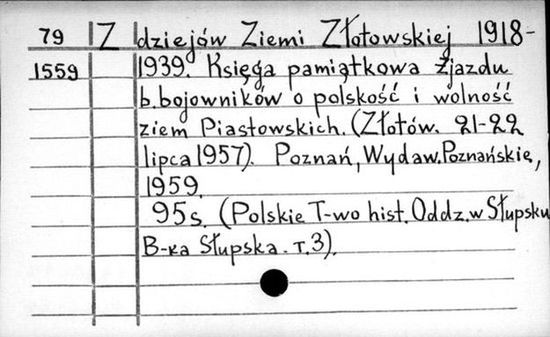 79 Z dziejów Ziemi Złotowskiej 1918-
1559 1939. Księga pamiątkowa zjazdu
b.bojowników o polskość i wolność
ziem Piastowskich. (Złotów. 21-22
lipca 1957). Poznań, Wydaw. Poznańskie,
1959.
95s. (Polskie T-wo hist. Oddz. w Słupsku
B-ka Słupska. T.3).